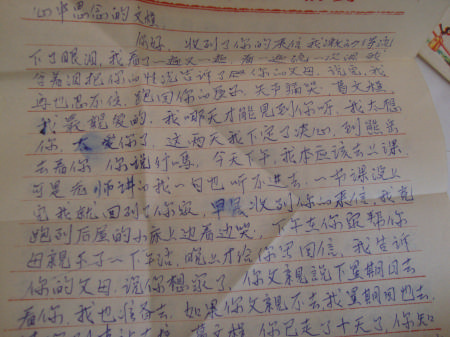 心中思念的文樵
你好，收到了你的来信我激动得流
下了眼泪，我看了一遍又一遍
含着泪把你的情况告诉了你的父母，说完，我
再也忍不住，跑回你的 失声痛哭，葛文樵，
我最亲爱的，我哪天才能见到你呀，我太想
你，太爱你了，这两天我下定了决心，到
去看你 你说行吗，今天下午，我本应该去上课
可是老师讲的我一句也听不进去，一节课没上
完我就回到了你家，早晨收到你的来信，我竟
跑到后屋的小床上边看边哭，下午在你家帮你
母亲干了一下午活，晚上才给你写回信，我告诉
你的父母，说你想家了，你父亲说下星期回去
看你，我也准备去，如果你父亲不去，我星期日也去，
葛文樵，你已走了十天了，你知